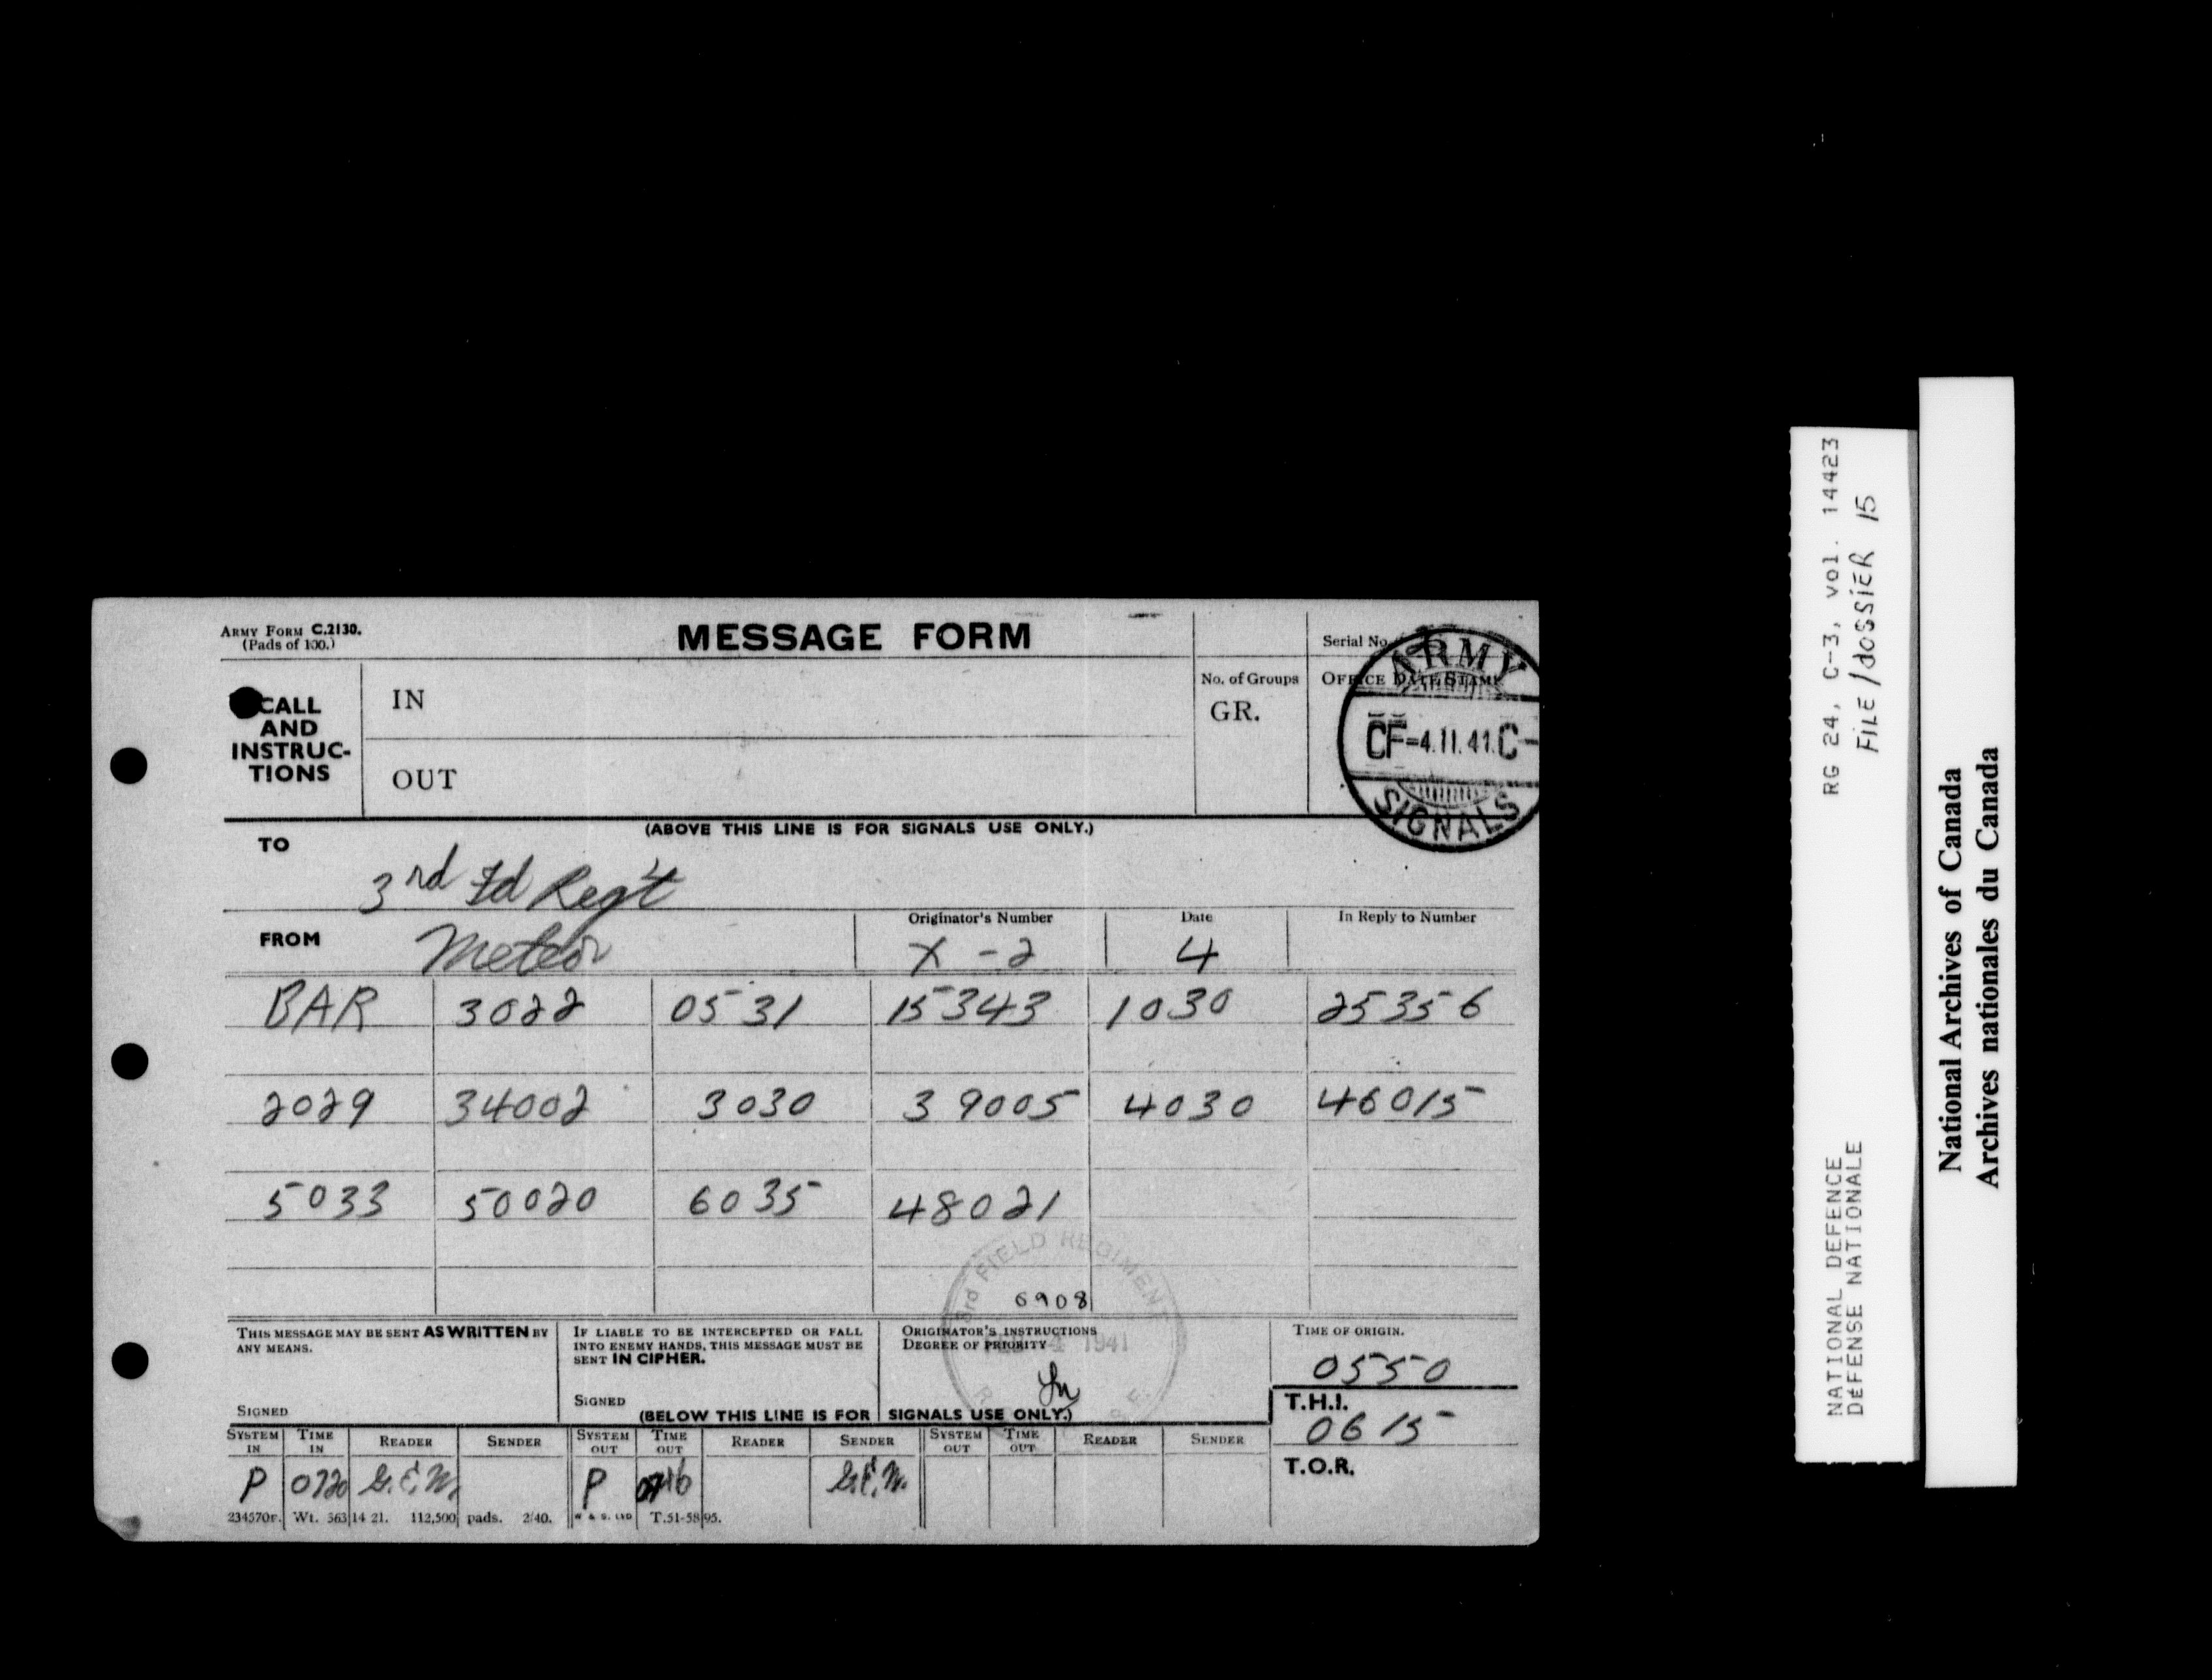 ARMY FORM C.2130.
(Pads of 100.)
MESSAGE FORM
Serial No.
CALL
AND
INSTRUC-
TIONS
IN
OUT
No. of Groups
GR.
OFFICE DATE STAMP
ARMY
CF=4.II.41.C-
SIGNALS
(ABOVE THIS LINE IS FOR SIGNALS USE ONLY.)
TO
3rd Fd Reg't
FROM
Meteor
Originator's Number
X-2
Date
4
In Reply to Number
BAR 3022 0531 15343 1030 25356
2029 34002 3030 39005 4030 46015
5033 50020 6035 48021
6908
3rd FIELD REGIMENT
4 1941
THIS MESSAGE MAY BE SENT AS WRITTEN BY
ANY MEANS.
SIGNED
IF LIABLE TO BE INTERCEPTED OR FALL
INTO ENEMY HANDS, THIS MESSAGE MUST BE
SENT IN CIPHER.
SIGNED
ORIGINATOR'S INSTRUCTIONS
DEGREE OF PRIORITY
TIME OF ORIGIN.
0550
T.H.I.
0615
T.O.R.
(BELOW THIS LINE IS FOR SIGNALS USE ONLY.)
SYSTEM IN TIME IN READER SENDER SYSTEM OUT TIME OUT READER SENDER SYSTEM OUT TIME OUT READER SENDER
P 0720 G.E.W. P G.E.W.
234570r. Wt. 563/14 21. 112,500 pads. 2/40. W & S. LTD T.51-5895.
RG 24, C-3, vol. 14423
FILE/dOSSiER 15
NATIONAL DEFENCE
DÉFENSE NATIONALE
National Archives of Canada
Archives nationales du Canada